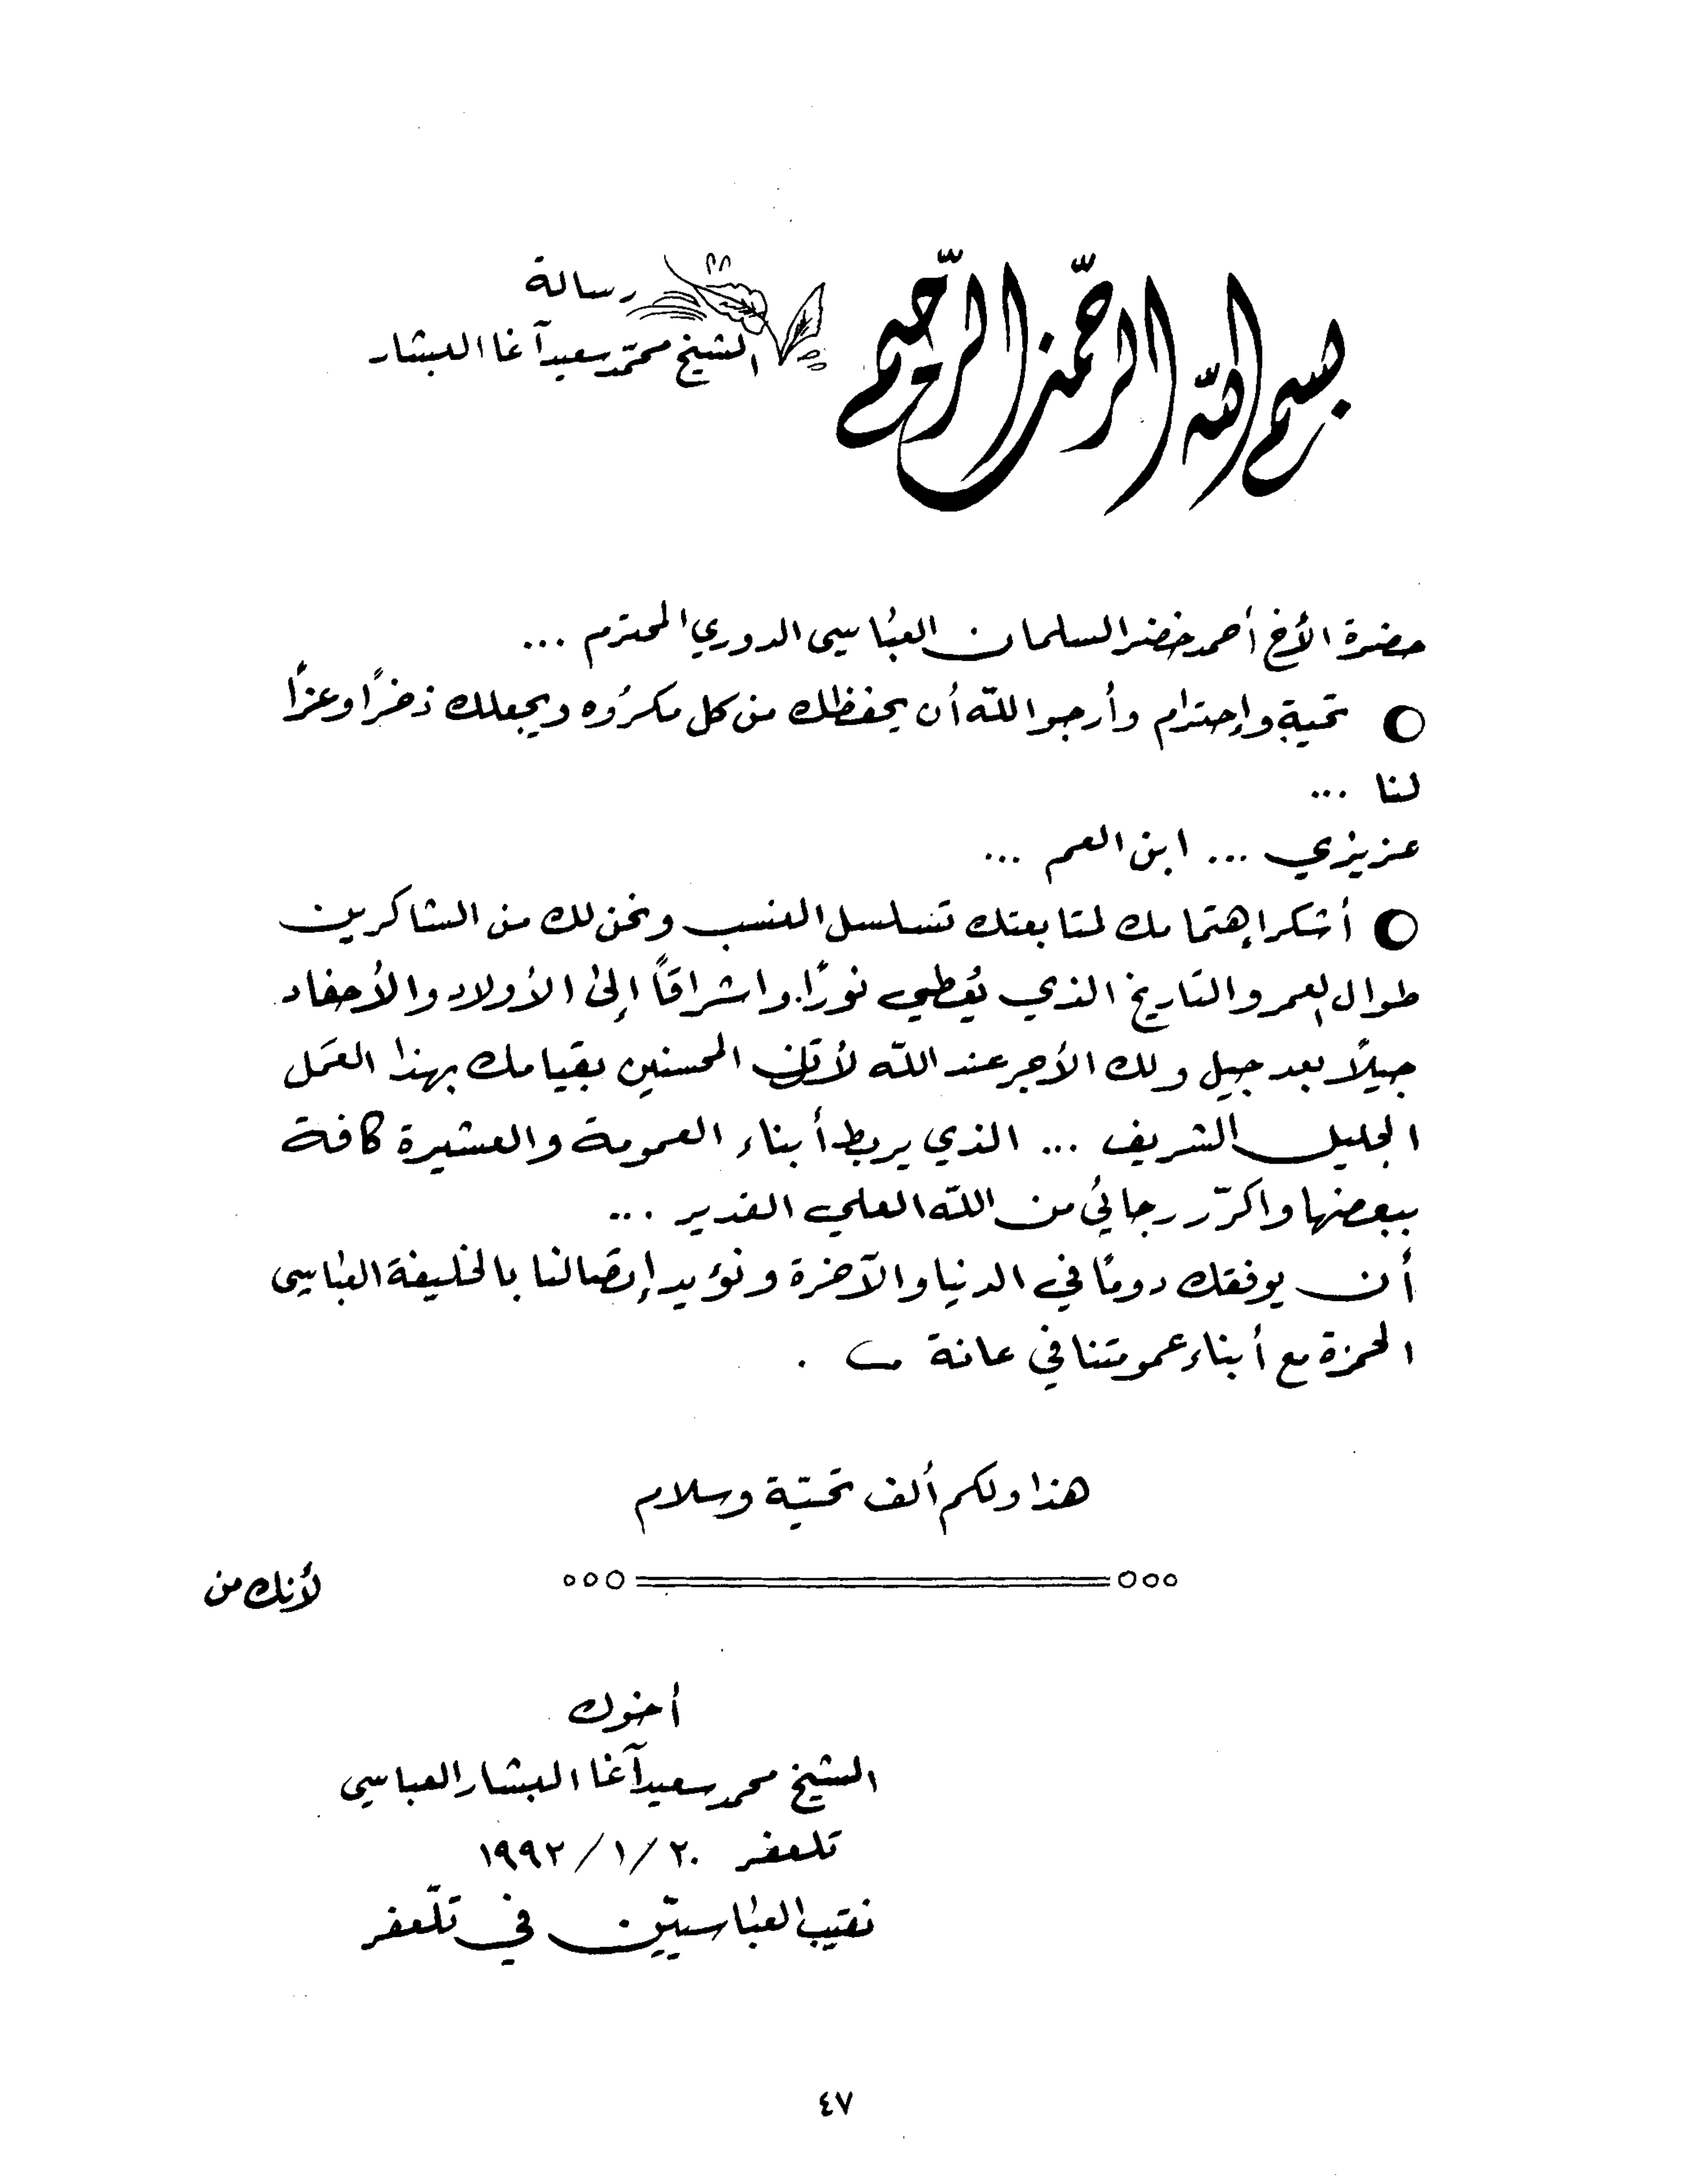 بسم الله الرحمن الرحيم
رسالة
الشيخ محمد سعيد آغا البشار
حضرة الأخ أحمد خضر السلمان العباسي الدوري المحترم ...
تحية وإحترام وأرجو الله أن يحفظك من كل مكروُه ويجعلك ذخرًا وعزًا
لنا ...
عزيزي ... ابن العم ...
أشكر إهتمامك لمتابعتك تسلسل النسب ونحن لك من الشاكرين
طوال العمر والتاريخ الذي يُعطي نورًا واشراقاً إلى الأولاد والأحفاد
جيلاً بعد جيل ولك الأجر عند الله لأنك المحسنين بقيامك بهذا العمَل
الجليل الشريف ... الذي يربط أبناء العمومة والعشيرة كافة
ببعضها واكرّر رجائي من الله العلي القدير ...
أن يوفقك دومًا في الدنيا والآخرة ونؤيد إتصالنا بالخليفة العباسي
الحمزة مع أبناء عمومتنا في عانة .
هذا ولكم ألف تحيّة وسلام
لأنك من
أخوك
الشيخ محمد سعيد آغا البشار العباسي
تلعفر ٢٠/١/١٩٩٢
نقيب العباسيّين في تلّعفر
٤٧